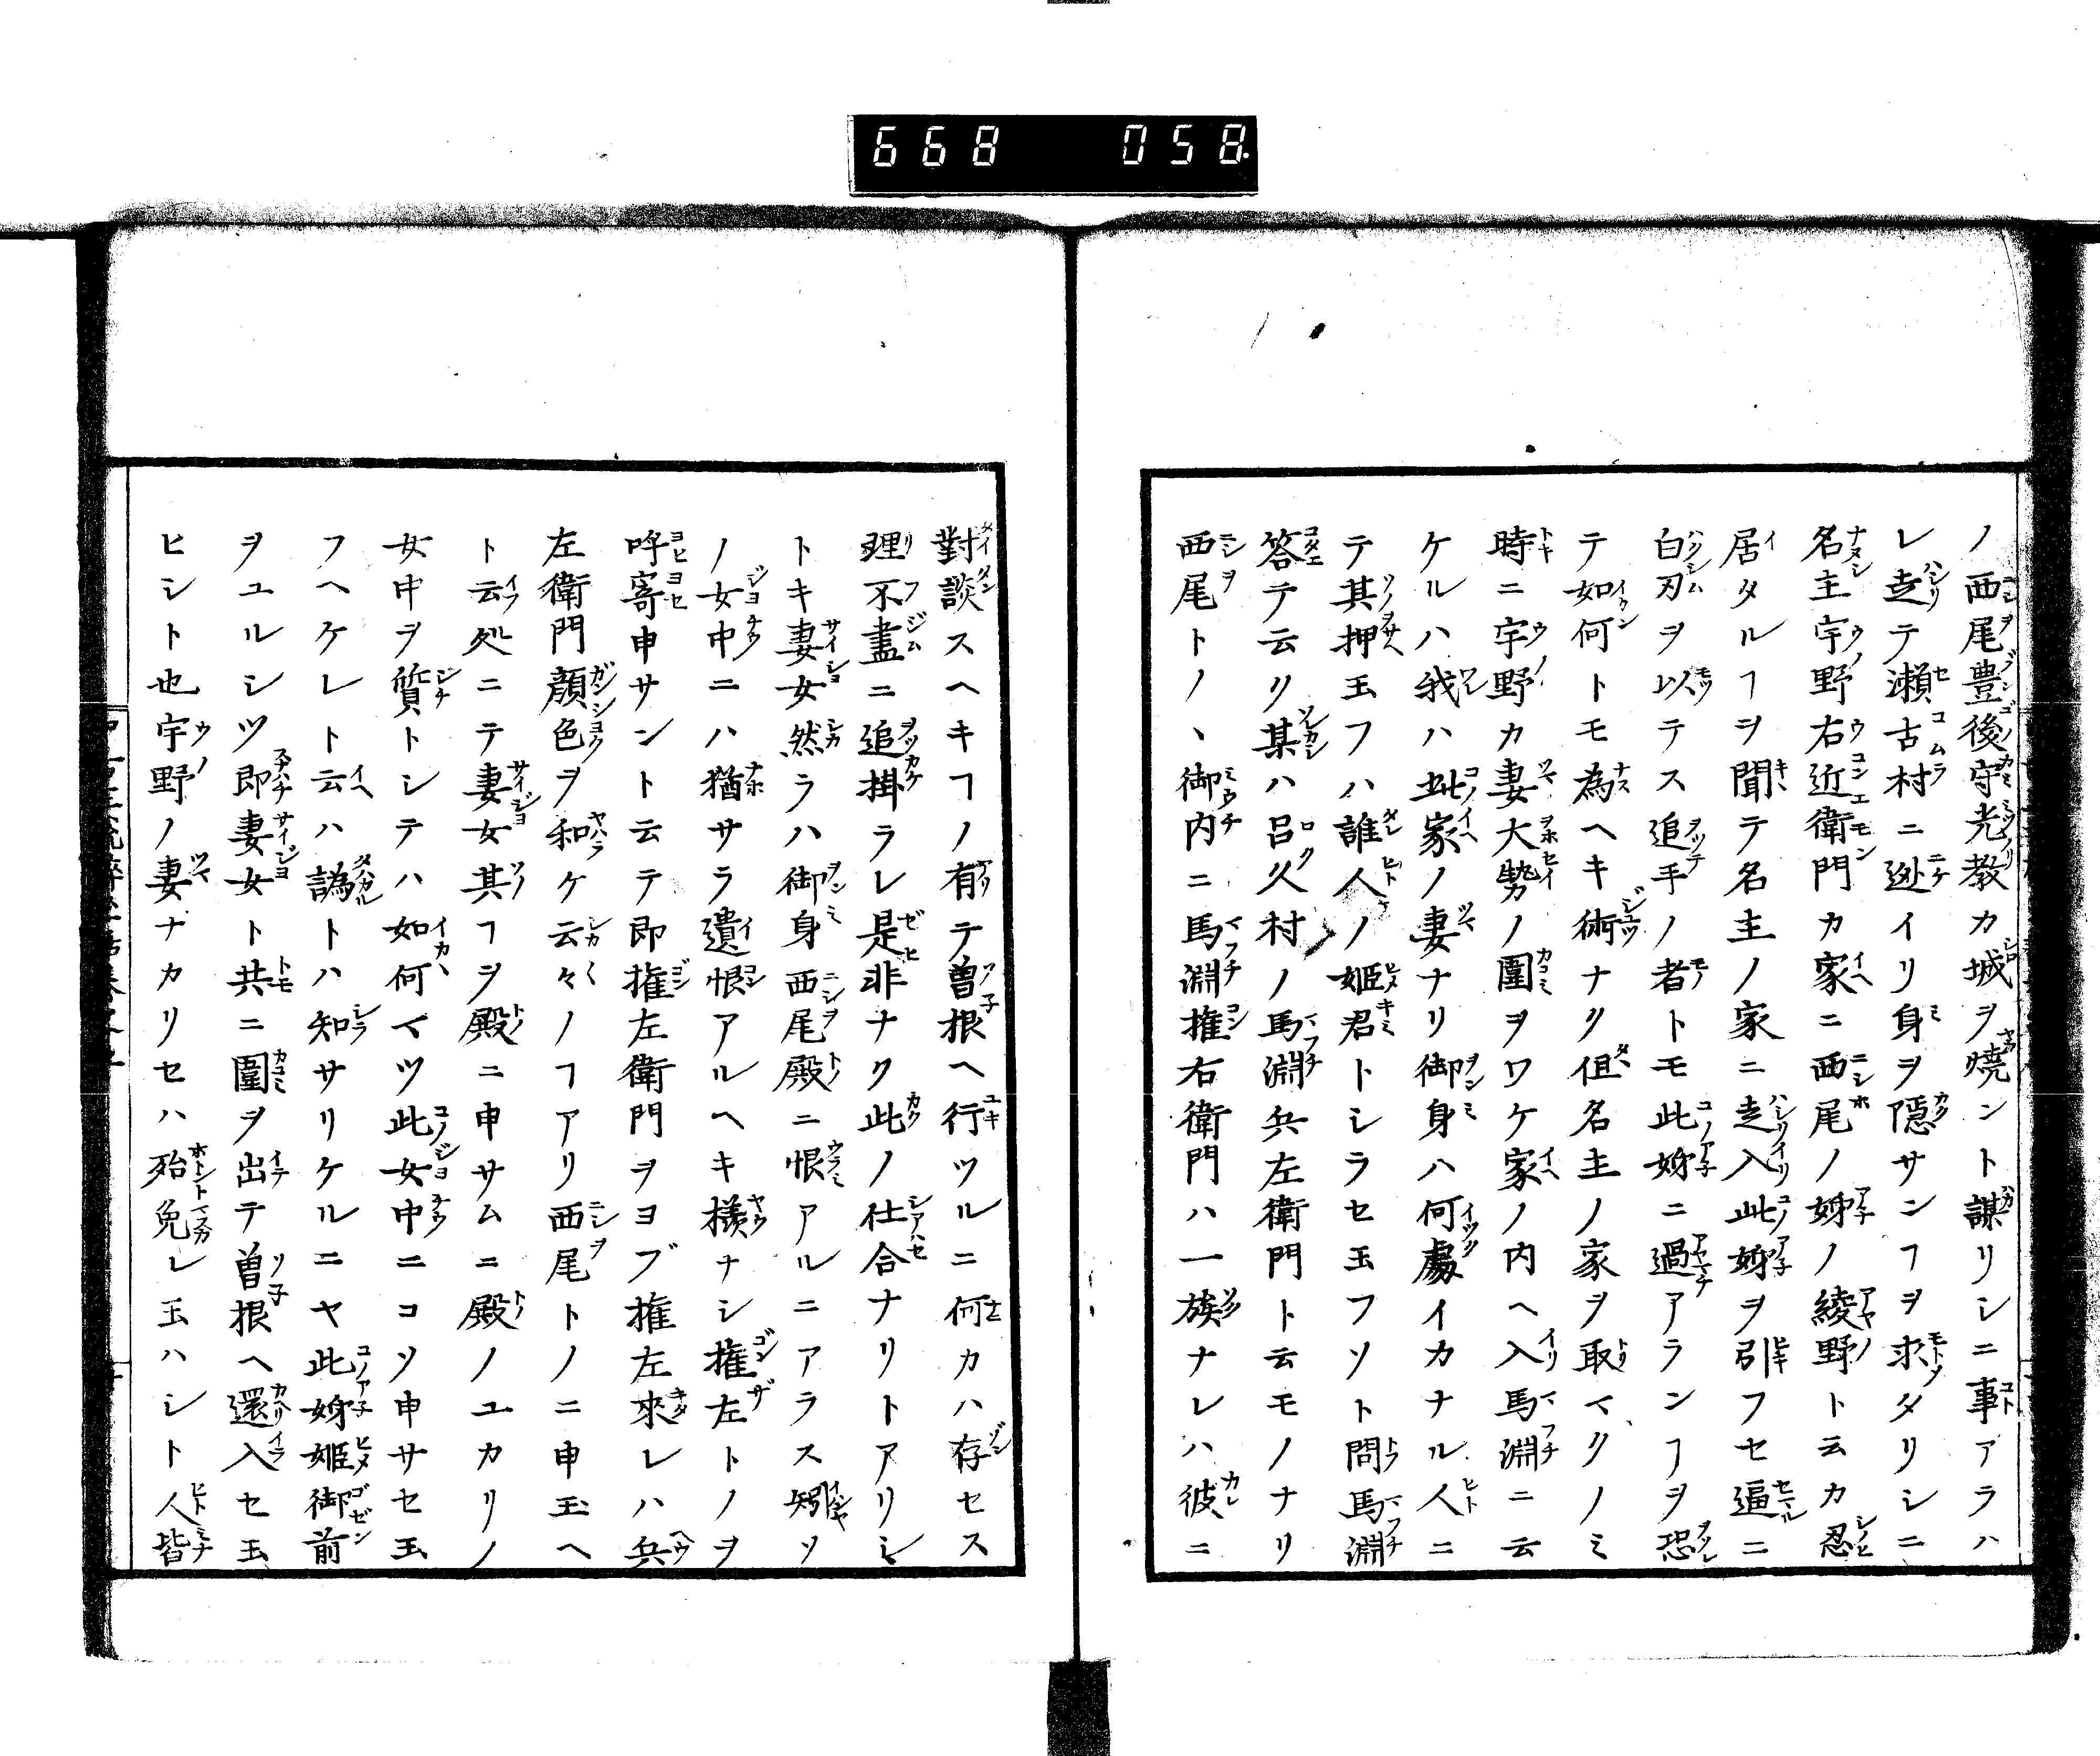 668 058
ノ西尾豊後守光教カ城ヲ焼ント謀リシニ事アラハ
レ走テ瀬古村ニ迯イリ身ヲ隠サンヿヲ求タリシニ
名主宇野右近衛門カ家ニ西尾ノ姉ノ綾野ト云カ忍
居タルヿヲ聞テ名主ノ家ニ走入此姉ヲ引フセ逼ニ
白刃ヲ以テス追手ノ者トモ此姉ニ過アランヿヲ恐
テ如何トモ為ヘキ術ナク但名主ノ家ヲ取マクノミ
時ニ宇野カ妻大勢ノ圍ヲワケ家ノ内ヘ入馬淵ニ云
ケルハ我ハ此家ノ妻ナリ御身ハ何處イカナル人ニ
テ其押玉フハ誰人ノ姫君トシラセ玉フソト問馬淵
答テ云リ某ハ呂久村ノ馬淵兵左衛門ト云モノナリ
西尾トノヽ御内ニ馬淵権右衛門ハ一族ナレハ彼ニ
對談スヘキヿノ有テ曽根ヘ行ツルニ何カハ存セス
理不盡ニ追掛ラレ是非ナク此ノ仕合ナリトアリシ
トキ妻女然ラハ御身西尾殿ニ恨アルニアラス矧ソ
ノ女中ニハ猶サラ遺恨アルヘキ様ナシ権左トノヲ
呼寄申サント云テ即権左衛門ヲヨブ権左來レハ兵
左衛門顔色ヲ和ケ云々ノヿアリ西尾トノニ申玉ヘ
ト云処ニテ妻女其ヿヲ殿ニ申サムニ殿ノユカリノ
女中ヲ質トシテハ如何マツ此女中ニコソ申サセ玉
フヘケレト云ハ譌トハ知サリケルニヤ此姉姫御前
ヲユルシツ即妻女ト共ニ圍ヲ出テ曽根ヘ還入セ玉
ヒシト也宇野ノ妻ナカリセハ殆免レ玉ハシト人皆